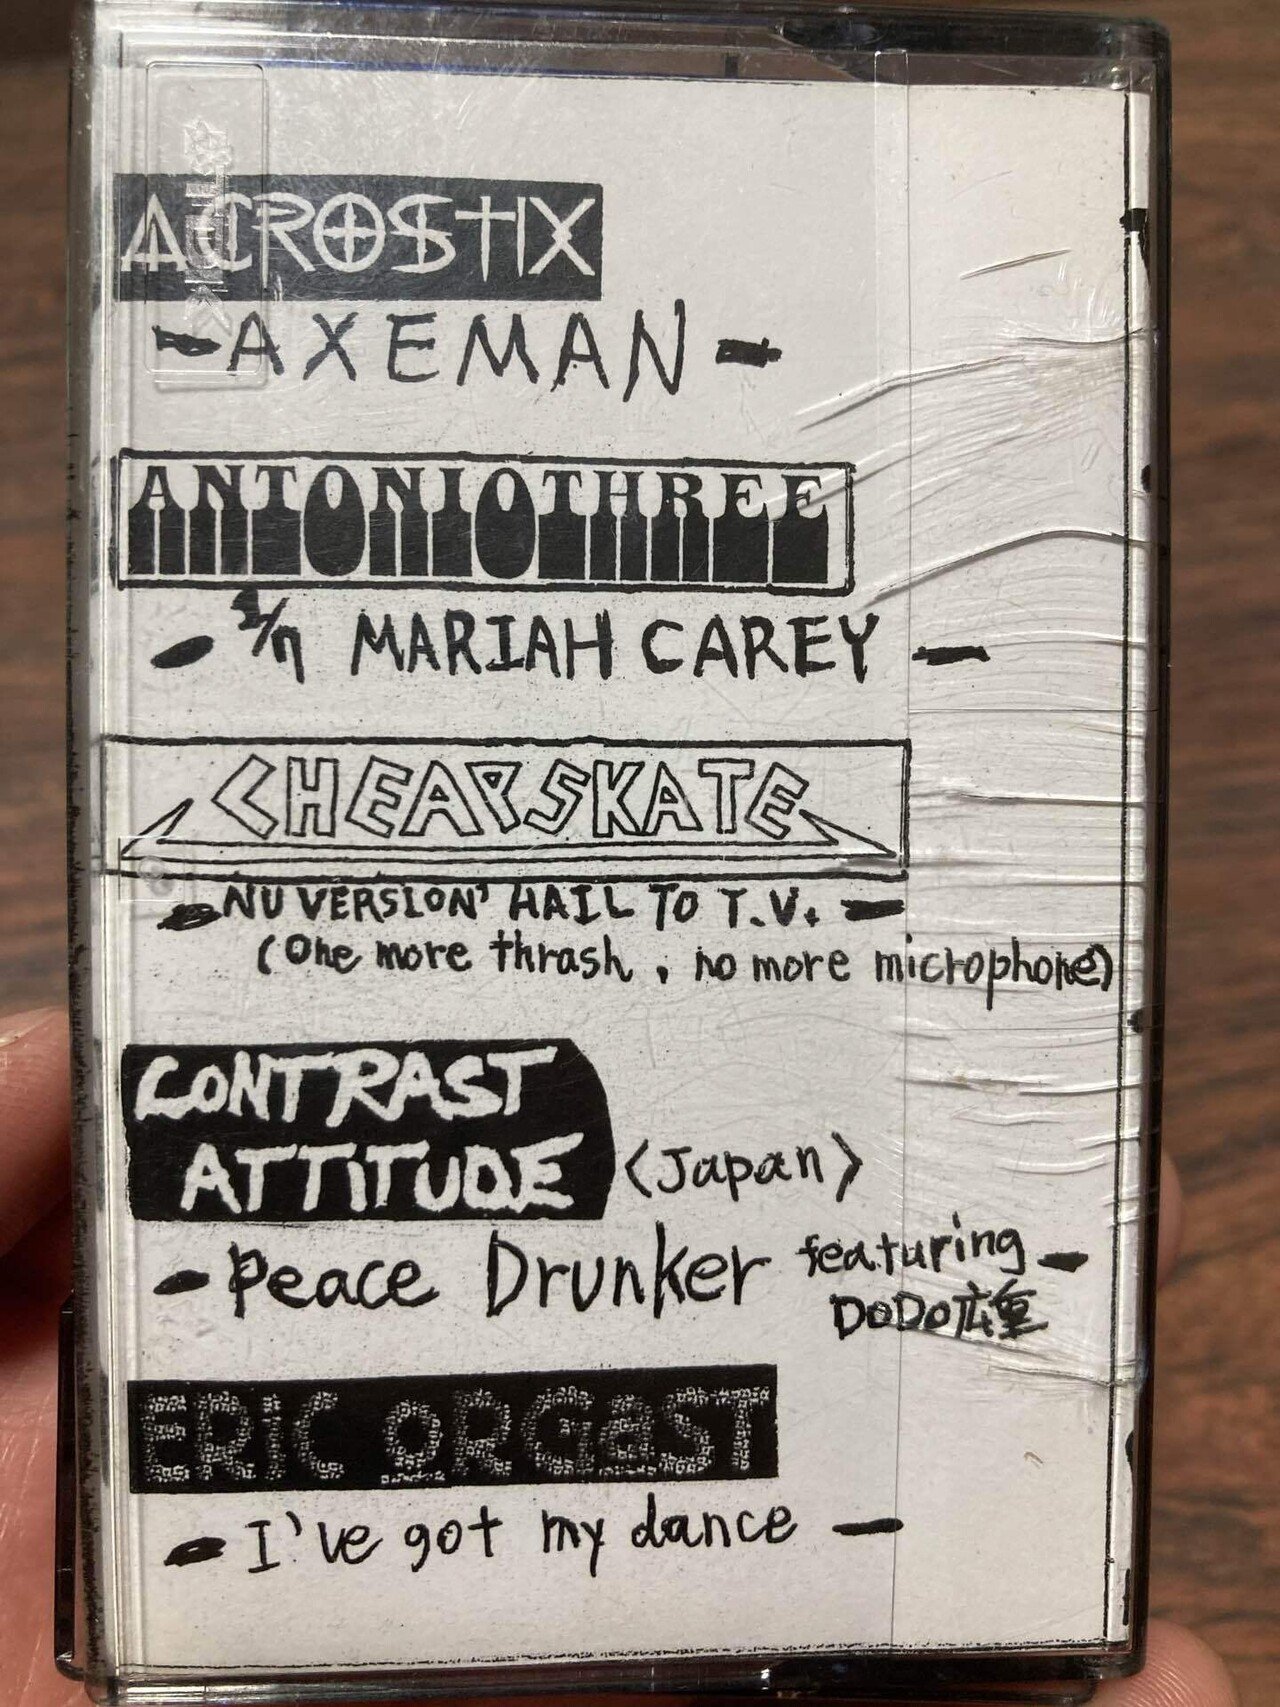 ACROSTIX
-AXEMAN-
ANTONIOTHREE
- 1/n MARIAH CAREY -
CHEAPSKATE
-NU VERSION' HAIL TO T.V. -
(One more thrash, no more microphone)
CONTRAST
ATTITUDE <Japan>
- Peace Drunker featuring -
DODO広重
ERIC ORGaST
- I've got my dance -